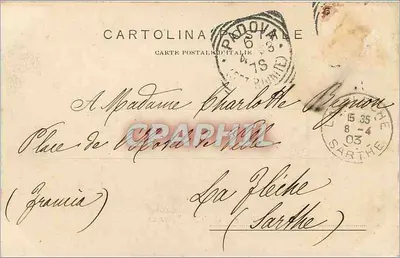 CARTOLINA POSTALE
CARTE POSTALE D'ITALIE
PADOVA
7S
A Madame Charlotte Bignon
Place de l'Hôtel de Ville
15 35
8-4
03
SARTHE
CPAPHIL
La Flèche
(Francia)
(Sarthe)